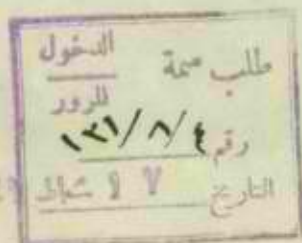 طلب سمة الدخول
للرور
رقم ١٣١/٨/٤
التاريخ ١٧ شباط